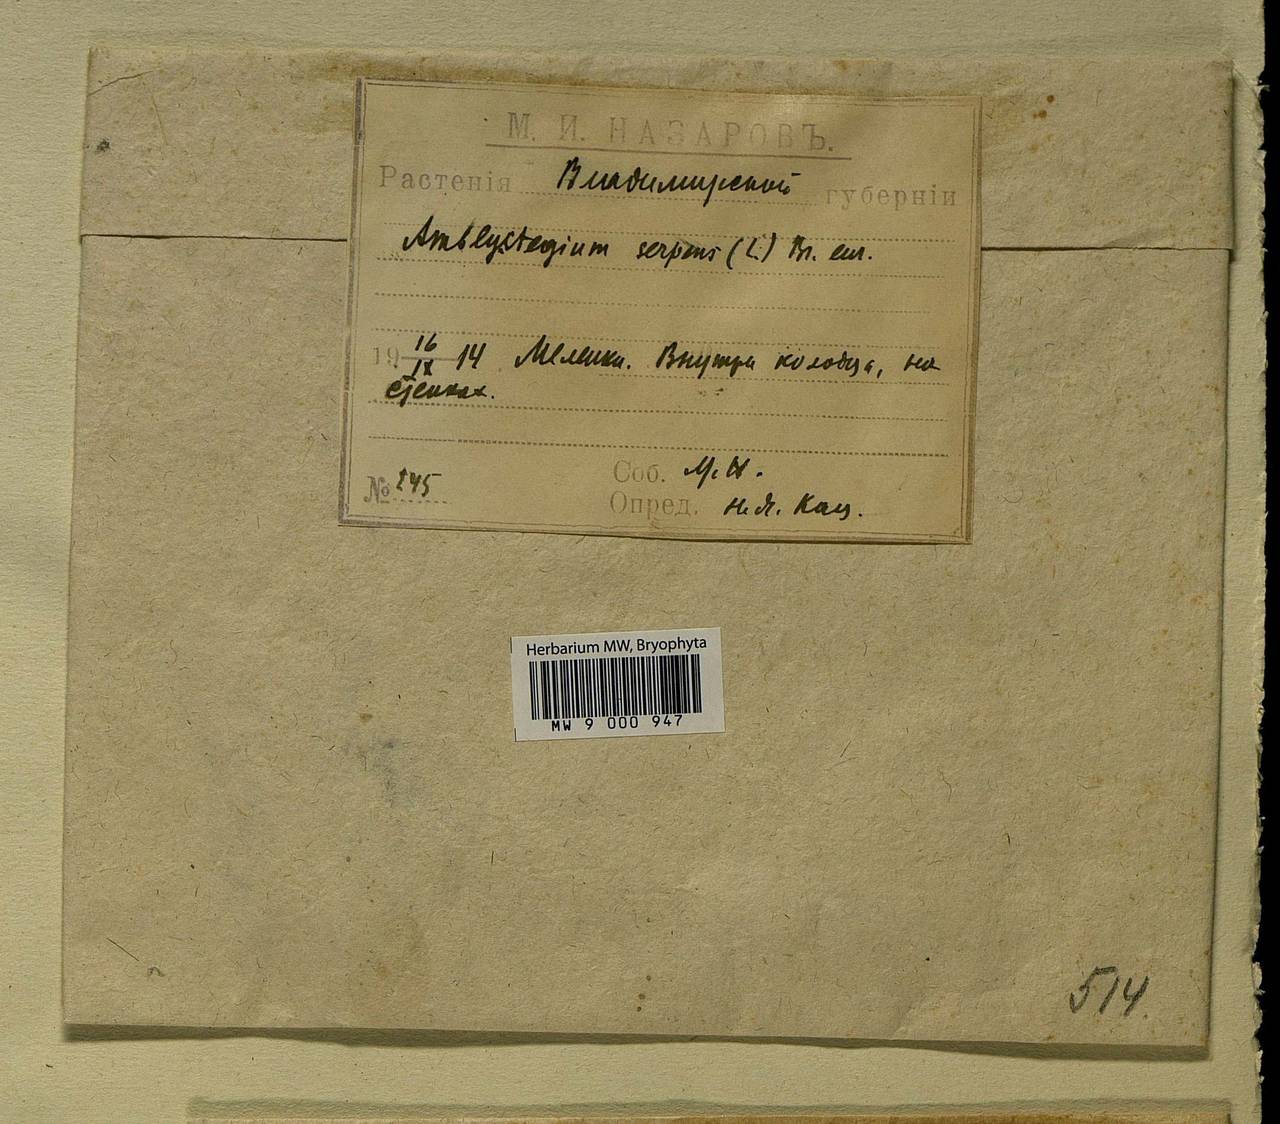 М. И. НАЗАРОВЪ.
Растенія Владимирской губерніи
Amblystegium serpens (L.) Br. eur.
19 16/IX 14 Меленки. Внутри колодца, на
стенках.
№ 245
Соб. М. Н.
Опред. Н. Я. Кац.
Herbarium MW, Bryophyta
MW 9 000 947
514